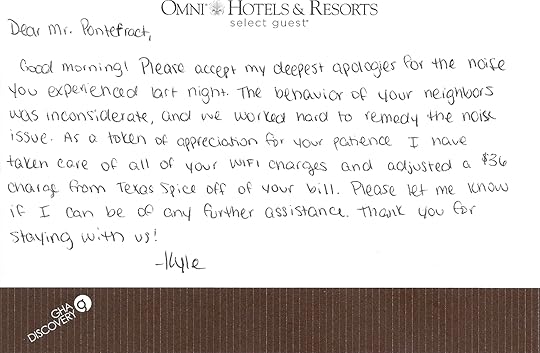 OMNI HOTELS & RESORTS
select guest
Dear Mr. Pontefract,
Good morning! Please accept my deepest apologies for the noise
you experienced last night. The behavior of your neighbors
was inconsiderate, and we worked hard to remedy the noise
issue. As a token of appreciation for your patience I have
taken care of all of your WiFi charges and adjusted a $36
charge from Texas Spice off of your bill. Please let me know
if I can be of any further assistance. Thank you for
staying with us!
-Kyle
GHA
DISCOVERY